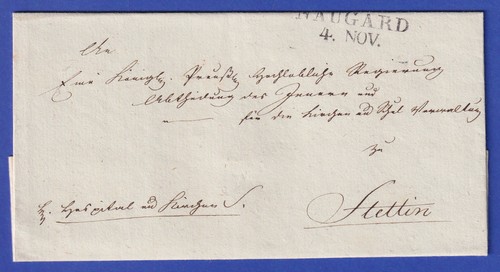 NAUGARD
4. NOV.
An
Eine Königl. Preuß. Hochlöbliche Regierung
Abtheilung des Innern und
für die Kirchen und Schul Verwaltung
zu
Hospital und Kirchen S.
Stettin